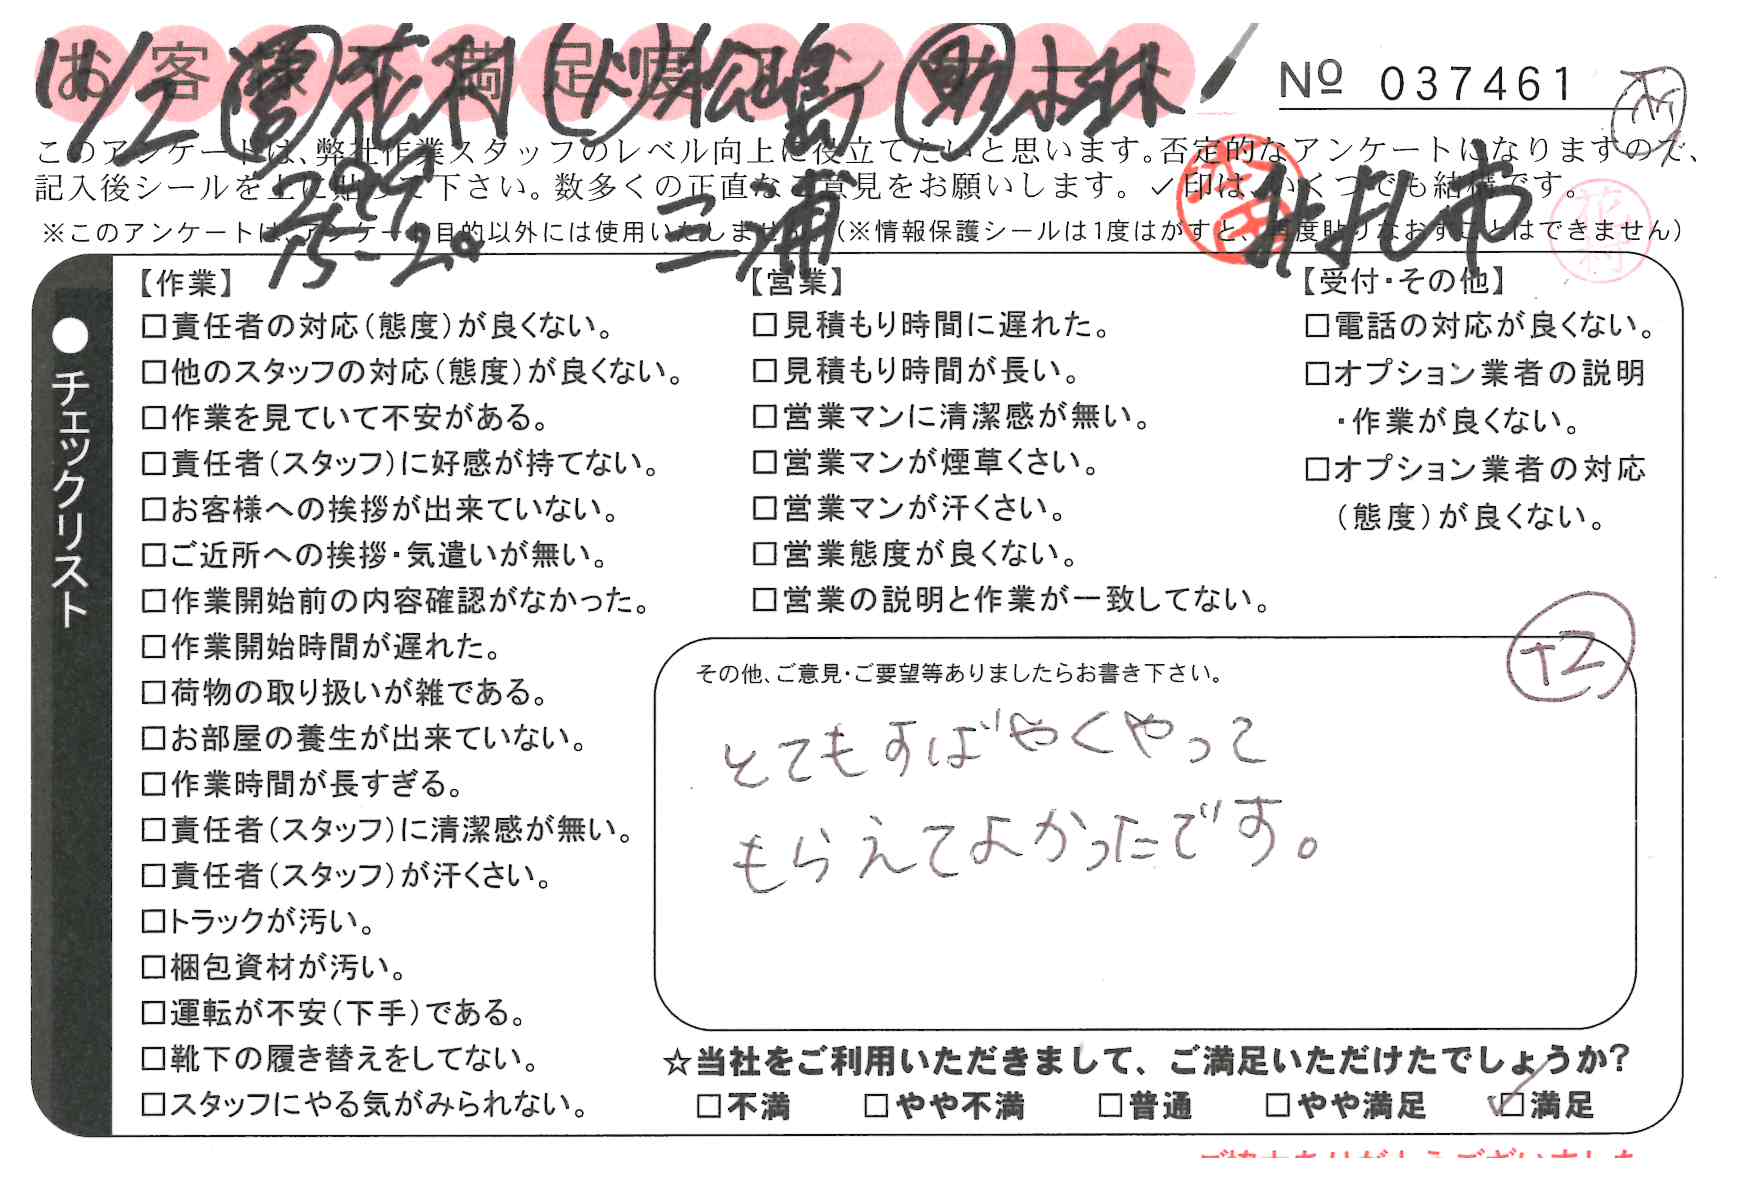 お客様不満足度アンケート
11/2 営 花村 ドリ 松島 助 小林
Nº 037461
このアンケートは、弊社作業スタッフのレベル向上に役立てたいと思います。否定的なアンケートになりますので、
記入後シールを上に貼って下さい。数多くの正直なご意見をお願いします。✓印は、いくつでも結構です。
※このアンケートは、アンケート目的以外には使用いたしません。(※情報保護シールは1度はがすと、再度貼りなおすことはできません)
15-20 三浦
花村
●チェックリスト
【作業】
□責任者の対応(態度)が良くない。
□他のスタッフの対応(態度)が良くない。
□作業を見ていて不安がある。
□責任者(スタッフ)に好感が持てない。
□お客様への挨拶が出来ていない。
□ご近所への挨拶・気遣いが無い。
□作業開始前の内容確認がなかった。
□作業開始時間が遅れた。
□荷物の取り扱いが雑である。
□お部屋の養生が出来ていない。
□作業時間が長すぎる。
□責任者(スタッフ)に清潔感が無い。
□責任者(スタッフ)が汗くさい。
□トラックが汚い。
□梱包資材が汚い。
□運転が不安(下手)である。
□靴下の履き替えをしてない。
□スタッフにやる気がみられない。
【営業】
□見積もり時間に遅れた。
□見積もり時間が長い。
□営業マンに清潔感が無い。
□営業マンが煙草くさい。
□営業マンが汗くさい。
□営業態度が良くない。
□営業の説明と作業が一致してない。
【受付・その他】
□電話の対応が良くない。
□オプション業者の説明
・作業が良くない。
□オプション業者の対応
(態度)が良くない。
その他、ご意見・ご要望等ありましたらお書き下さい。
T2
とてもすばやくやって
もらえてよかったです。
☆当社をご利用いただきまして、ご満足いただけたでしょうか?
□不満 □やや不満 □普通 □やや満足 ☑満足
ご協力ありがとうございました